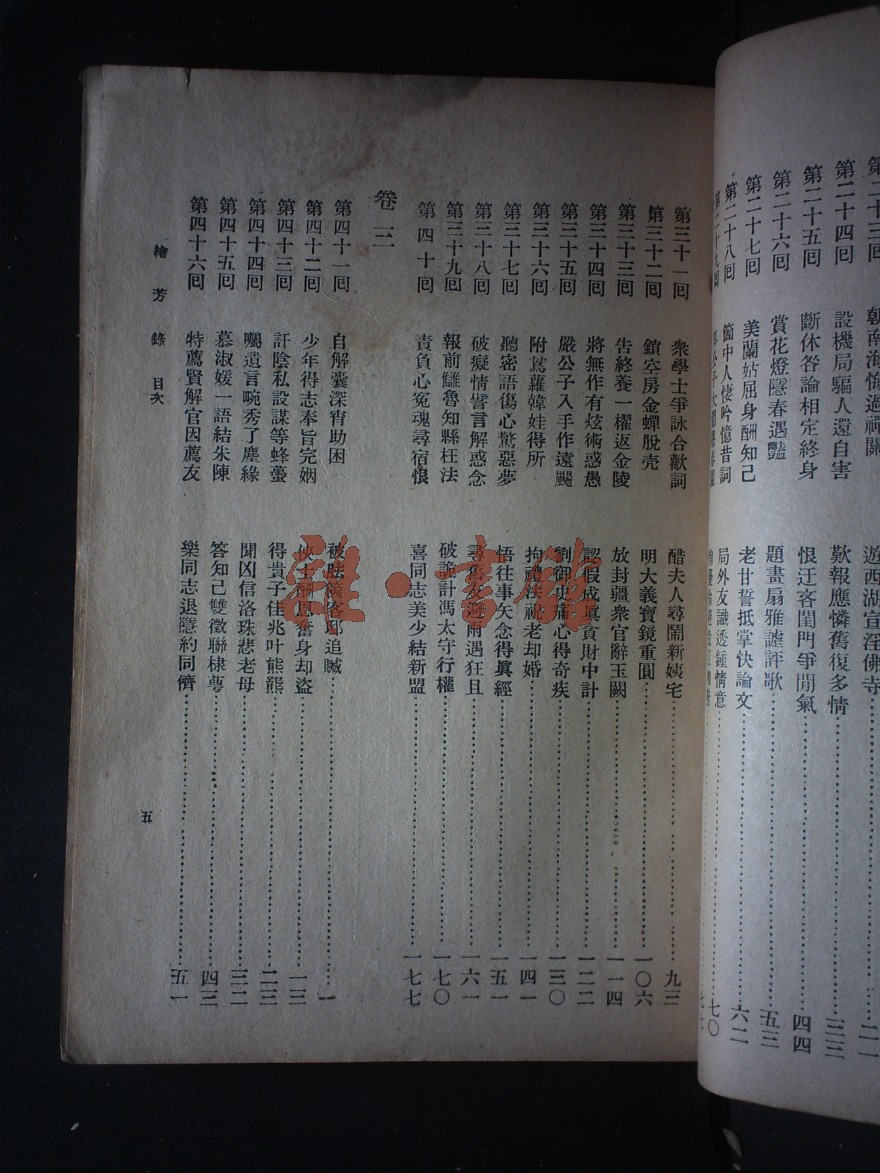 第二十三回 朝南海慌過祠關 遊西湖宣淫佛寺 二一
第二十四回 設機局驅人還自害 歎報應憐舊復多情 三三
第二十五回 斷休咎論相定終身 恨迂客閨門爭閒氣 四四
第二十六回 賞花燈隱春遇豔 題畫扇雅謔評歌 五三
第二十七回 美蘭姑屈身酬知己 老甘誓抵掌快論文 六二
第二十八回 箇中人悽吟憶昔詞 局外友識透鍾情意 七〇
第二十九回
第三十一回 衆學士爭詠合歡詞 醋夫人尋鬧新姨宅 九三
第三十二回 鎖空房金蟬脫壳 明大義寶鏡重圓 一〇六
第三十三回 告終養一櫂返金陵 放封疆衆官辭玉闕 一一四
第三十四回 將無作有炫術惑愚 認假成眞貪財中計 一二二
第三十五回 嚴公子入手作遠颺 劉御史痛心得奇疾 一三〇
第三十六回 附蔦蘿韓娃得所 拘禮 祝老却婚 一四一
第三十七回 聽密語傷心驚惡夢 悟往事矢念得眞經 一五一
第三十八回 破癡情讐言解惑念 尋舊友避雨遇狂且 一六一
第三十九回 報前讎魯知縣枉法 破詭計馮太守行權 一七〇
第四十回 責負心冤魂尋宿恨 喜同志美少結新盟 一七七
卷三
第四十一回 自解囊深宵助困 被胠篋客邸追贓 一
第四十二回 少年得志奉旨完姻 俠士酬恩奮身却盜 一三
第四十三回 訐陰私設謀等蜂蠆 得貴子佳兆叶熊羆 二三
第四十四回 囑遺言畹秀了塵緣 聞凶信洛珠悲老母 三二
第四十五回 慕淑媛一語結朱陳 答知己雙徵聯棣萼 四三
第四十六回 特薦賢解官因薦友 樂同志退隱約同儕 五一
繪芳錄 目次
五